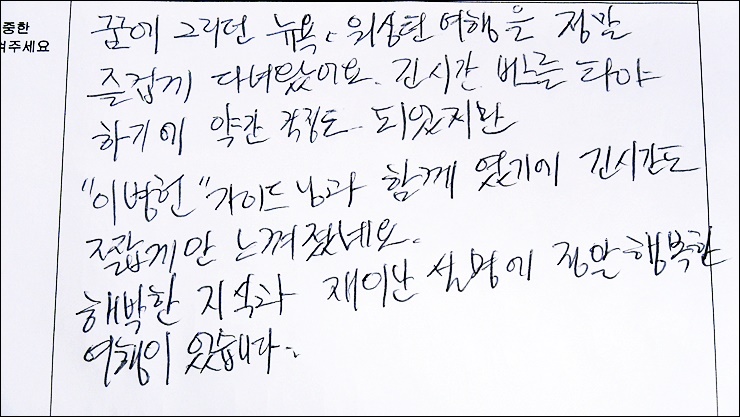 중한
여주세요
꿈에 그리던 뉴욕, 워싱턴 여행을 정말
즐겁게 다녀왔어요. 긴시간 버스를 타야
하기에 약간 걱정도 되었지만
"이병헌" 가이드님과 함께 였기에 긴시간도
짧게만 느껴졌네요.
해박한 지식과 재미난 설명에 정말 행복한
여행이 었습니다.